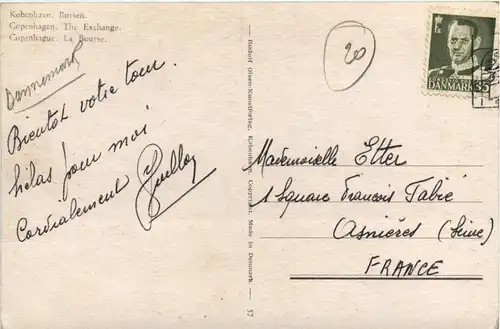 København. Børsen.
Copenhagen. The Exchange.
Copenhague. La Bourse.
Dannemark
Bientôt votre tour.
hélas pour moi
Cordialement
Rudolf Olsen-Kunstforlag, København. Copyright. Made in Denmark. — 57
20
DANMARK 35
Mademoiselle Etter
1 Square Francois Fabié
Asnières (Seine)
FRANCE